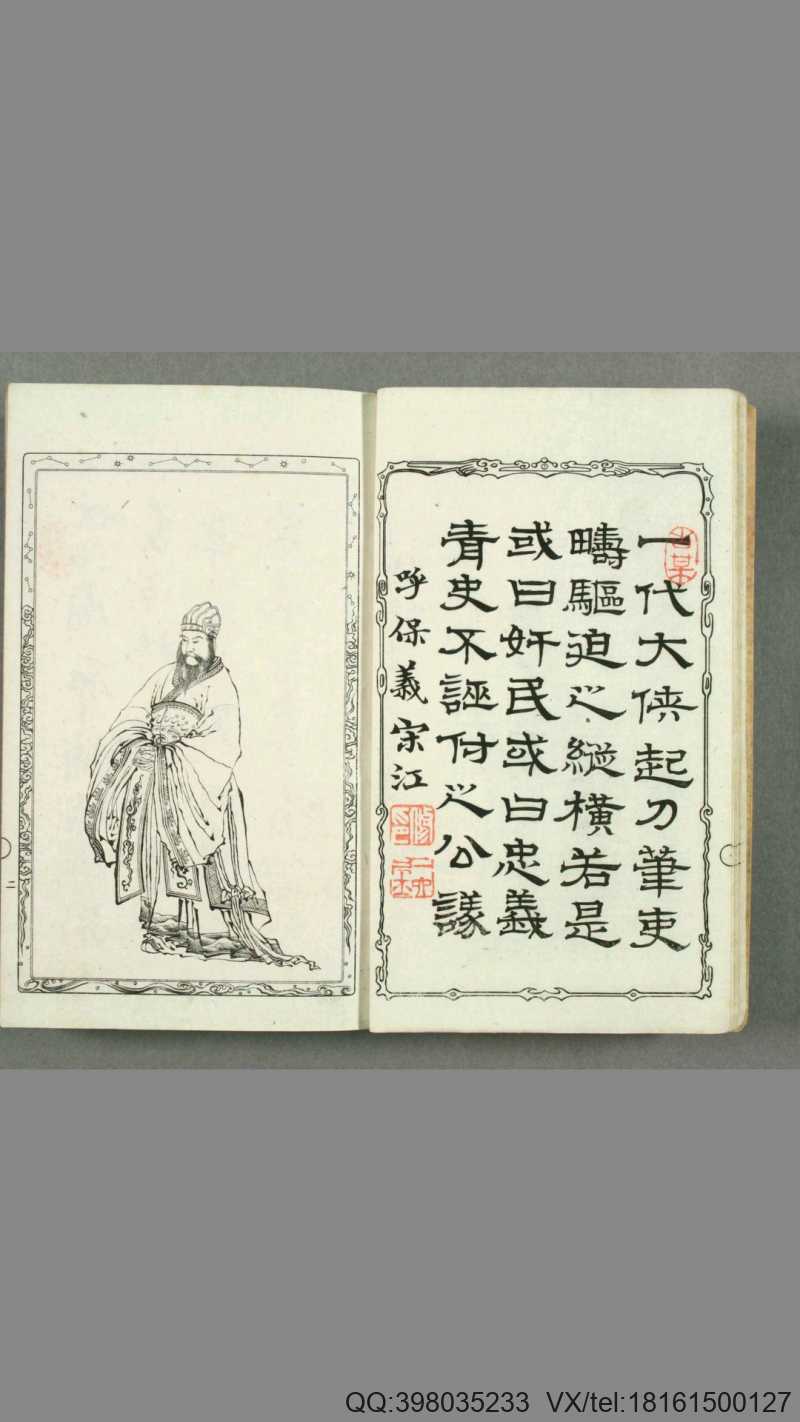 一代大俠起刀筆吏
疇驅迫之縱橫若是
或曰奸民或曰忠義
青史不誣付之公議
呼保義宋江
二
QQ:398035233 VX/tel:18161500127